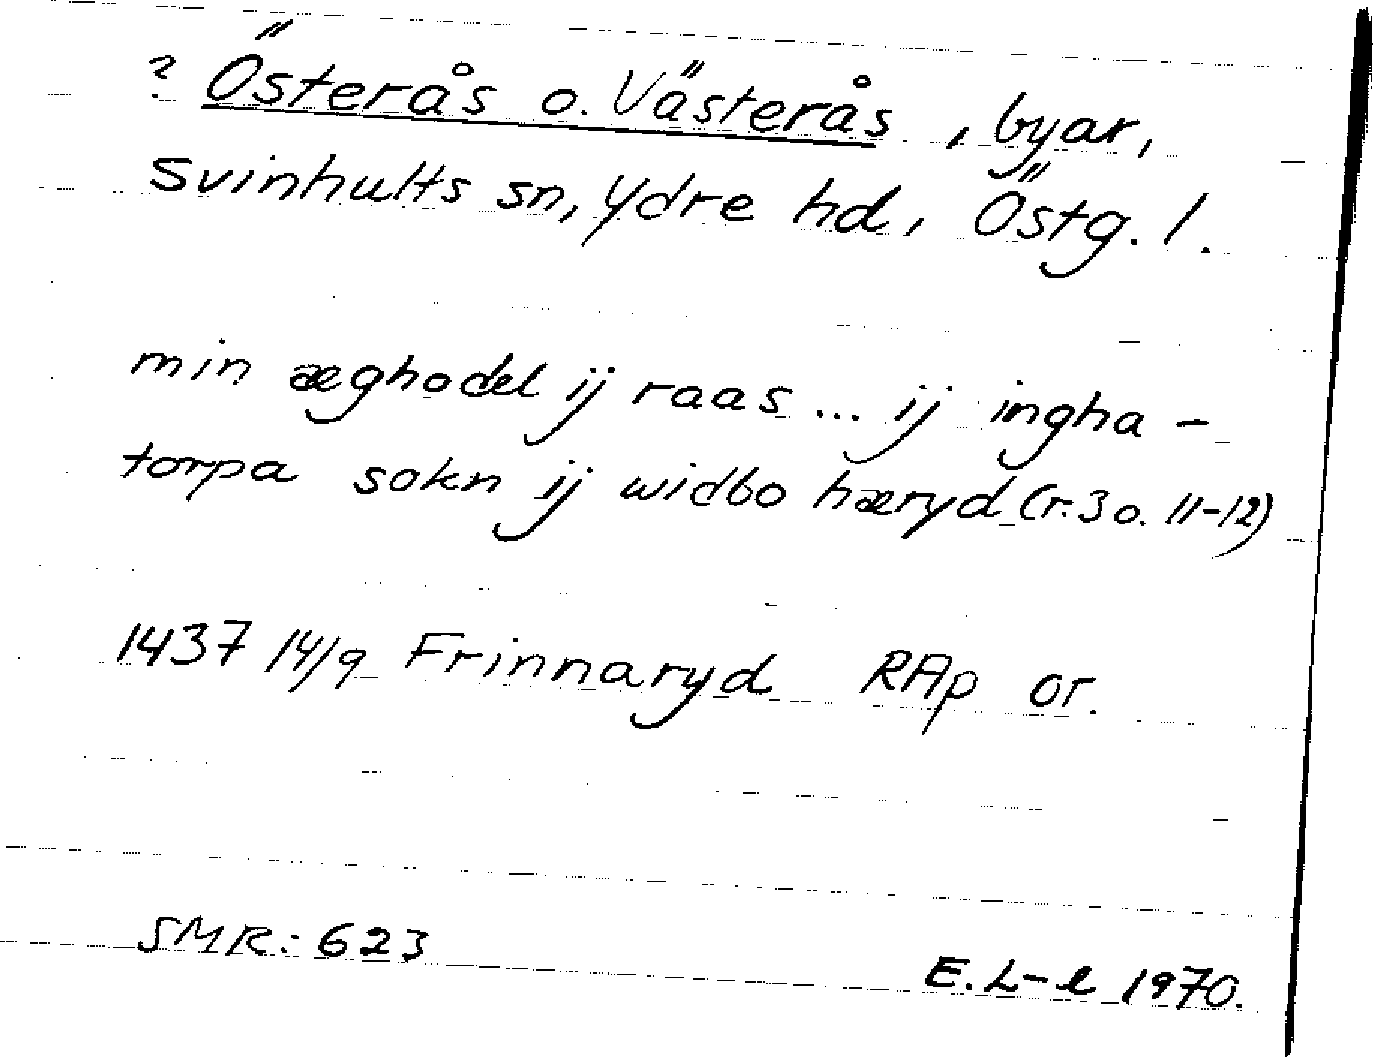 ? Österås o. Västerås, byar,
Svinhults sn, Ydre hd, Östg. l.
min æghodel ij raas ... ij ingha-
torpa sokn ij widbo hæryd (r. 3 o. 11-12)
1437 14/9 Frinnaryd RAp or.
SMR: 623
E. L-l 1970.